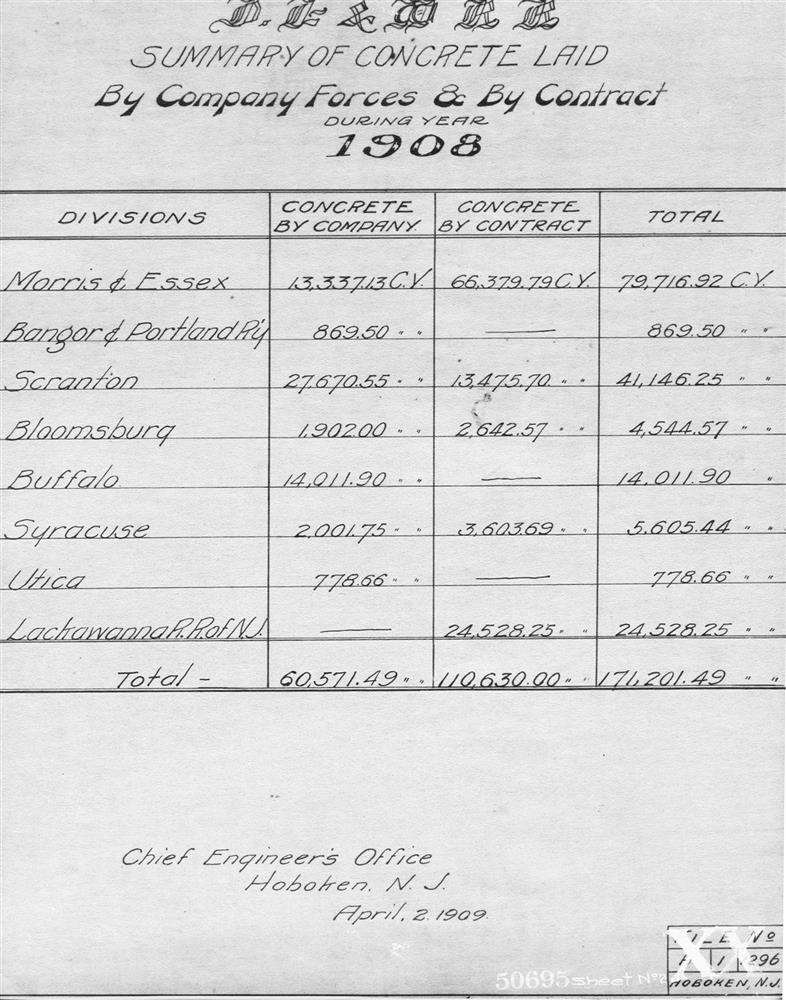 D. L & W R R
SUMMARY OF CONCRETE LAID
By Company Forces & By Contract
DURING YEAR
1908
DIVISIONS CONCRETE BY COMPANY. CONCRETE BY CONTRACT TOTAL
Morris & Essex 13,337.13 C.Y. 66,379.79 C.Y. 79,716.92 C.Y.
Bangor & Portland R'y 869.50 " " — 869.50 " "
Scranton 27,670.55 " " 13,475.70 " " 41,146.25 " "
Bloomsburg 1,902.00 " " 2,642.57 " " 4,544.57 " "
Buffalo 14,011.90 " " — 14,011.90 "
Syracuse 2,001.75 " " 3,603.69 " " 5,605.44 " "
Utica 778.66 " " — 778.66 " "
Lackawanna R.R. of N.J. — 24,528.25 " " 24,528.25 " "
Total - 60,571.49 " " 110,630.00 " " 171,201.49 " "
Chief Engineer's Office
Hoboken, N. J.
April, 2. 1909.
FILE No
1 296
HOBOKEN, N.J.
50695 Sheet No
XX